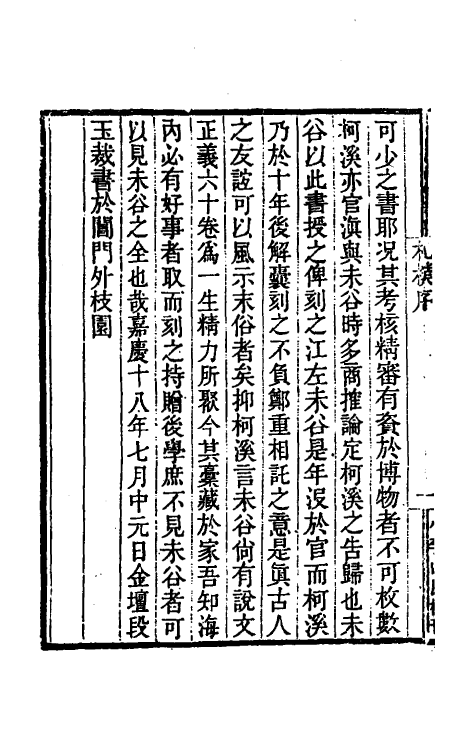 札樸序
可少之書耶况其考核精審有資於博物者不可枚數
柯溪亦官滇與未谷時多商搉論定柯溪之告歸也未
谷以此書授之俾刻之江左未谷是年沒於官而柯溪
乃於十年後解囊刻之不負鄭重相託之意是眞古人
之友誼可以風示末俗者矣抑柯溪言未谷尙有說文
正義六十卷爲一生精力所聚今其藁藏於家吾知海
內必有好事者取而刻之持贈後學庶不見未谷者可
以見未谷之全也哉嘉慶十八年七月中元日金壇段
玉裁書於閶門外枝園